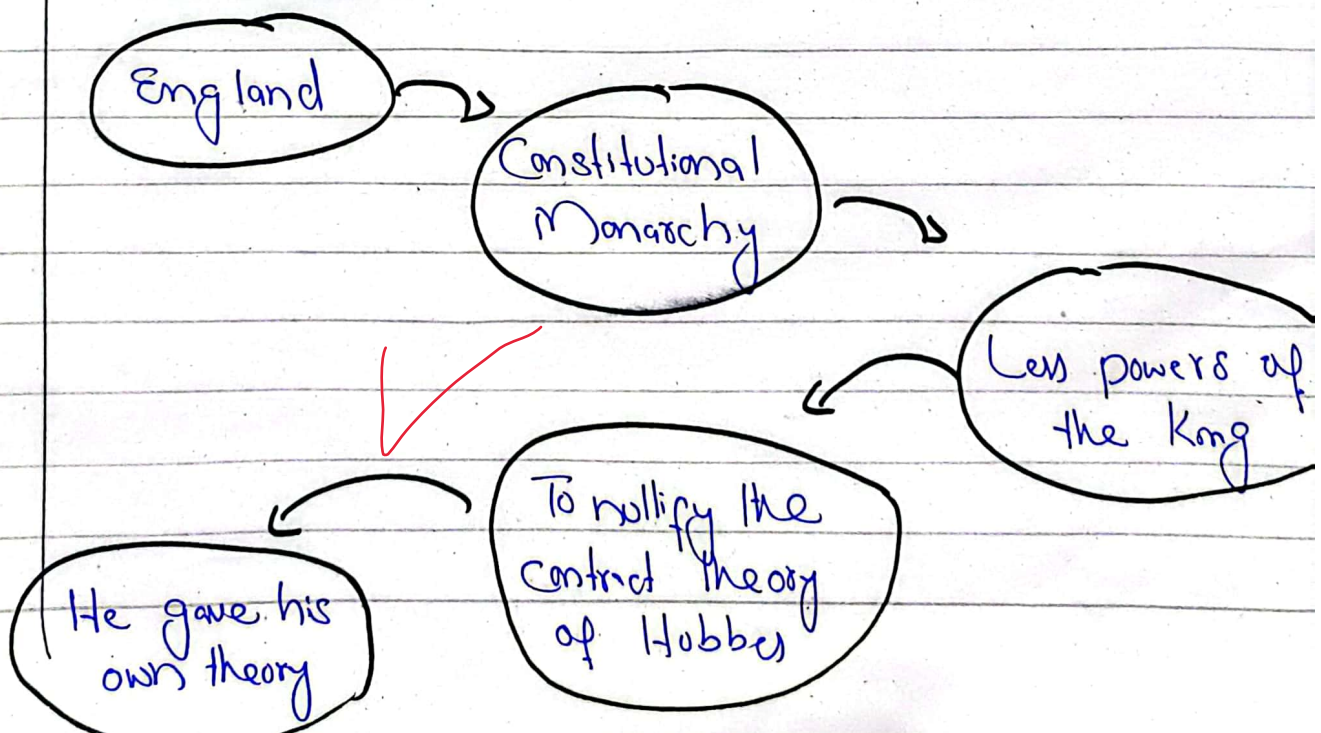 England
Constitutional
Monarchy
Less powers of
the King
To nullify the
contract theory
of Hobbes
He gave his
own theory